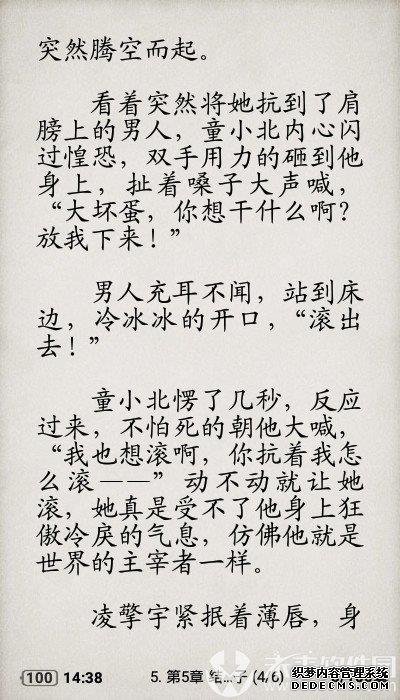 突然腾空而起。
看着突然将她抗到了肩
膀上的男人，童小北内心闪
过惶恐，双手用力的砸到他
身上，扯着嗓子大声喊，
“大坏蛋，你想干什么啊？
放我下来！”
男人充耳不闻，站到床
边，冷冰冰的开口，“滚出
去！”
童小北愣了几秒，反应
过来，不怕死的朝他大喊，
“我也想滚啊，你抗着我怎
么滚——” 动不动就让她
滚，她真是受不了他身上狂
傲冷戾的气息，仿佛他就是
世界的主宰者一样。
凌擎宇紧抿着薄唇，身
100 14:38 5. 第5章 结...子 (4/6)
织梦内容管理系统
DEDECMS.COM